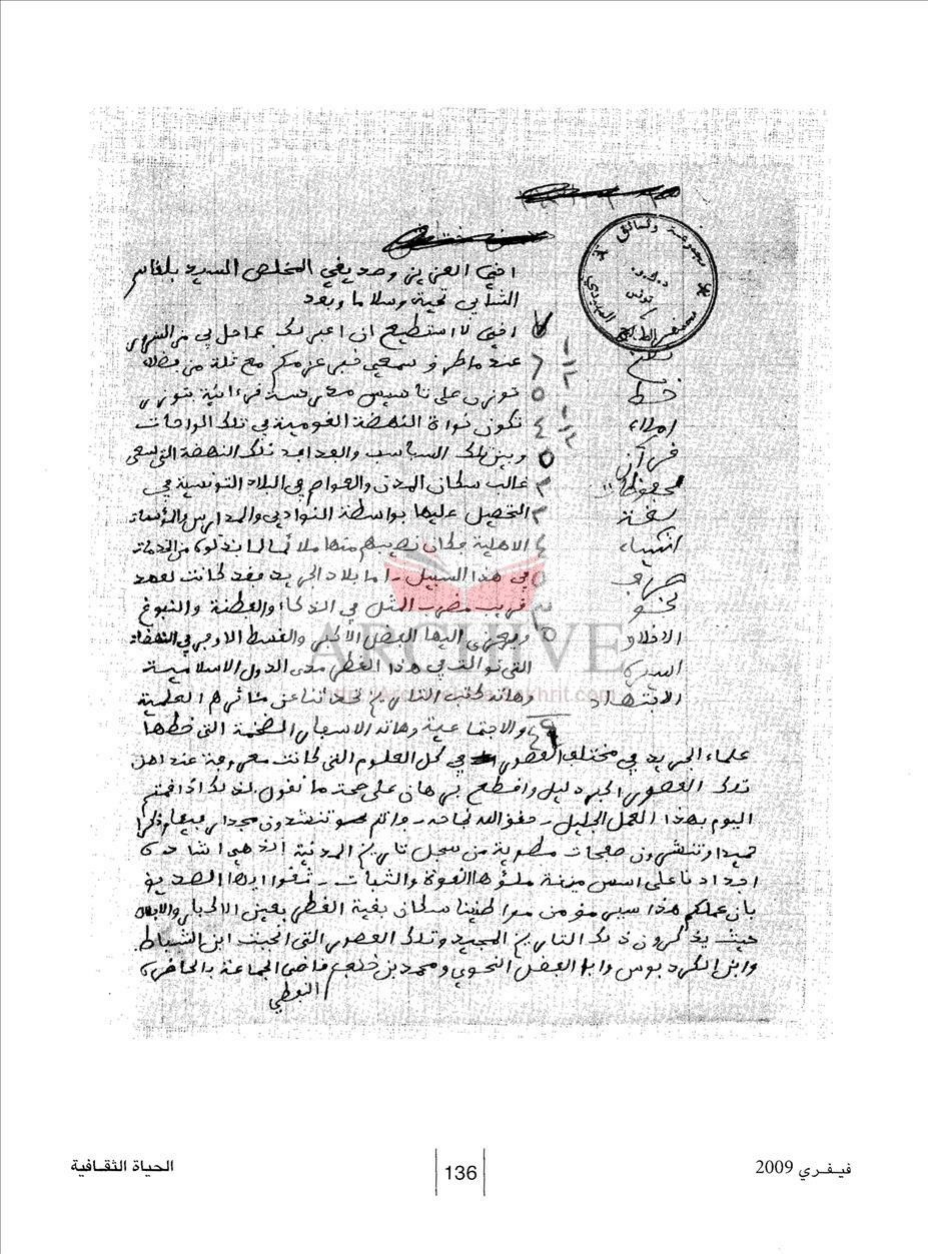 مجموعة وثائق
د.ك.و.
تونس
اخي العزيز وصديقي المخلص السيد بلقاسم
الشابي تحية وسلاما وبعد
اخي لا استطيع ان اعبر لك عما حل بي من السرور
عندما طرق سمعي خبر عزمكم مع ثلة من فضلاء
توزر على تاسيس مدرسة قرءانية بتوزر
تكون نواة النهضة القومية في تلك الواحات
وبين تلك السباسب والفدافد تلك النهضة التي سعى
غالب سكان المدن والعواصم في البلاد التونسية في
التحصيل عليها بواسطة النوادي والمدارس والمؤسسات
الاهلية فكان نصيبهم منها ملائما لما بذلوه من الخدمات
في هذا السبيل اما بلاد الجريد فقد كانت لعهد
قريب مضرب المثل في الذكاء والفطنة والنبوغ
ويعزى اليها الفضل الاكبر والقسط الاوفر في النهضات
التي توالت في هذا القطر مدى الدول الاسلامية
وهاته كتب التاريخ تحدثنا عن مئاثرهم العلمية
والاجتماعية وهاته الاسفار الضخمة التي خطها
علماء الجريد في مختلف العصور في كل العلوم التي كانت معروفة عند اهل
تلك العصور اكبر دليل واقطع برهان على صحة ما نقول لذلك اذا قمتم
اليوم بهذا العمل الجليل حقق الله نجاحه وانتم تنشدون مجدا رفيعا وذكرا
حميدا وتنشرون صفحات مطوية من سجل تاريخ المدنية الذهبي شاده
اجدادنا على اسس متينة ملؤها القوة والثبات ثقوا ايها الصديق
بان عملكم هذا سيرمقه من مواطنينا سكان بقية القطر بعين الاكبار والاجلال
حيث يذكرون ذلك التاريخ المجيد وتلك العصور التي انجبت ابن الشباط
وابن الكردبوس وابا الفضل النحوي ومحمد بن قاضي الجماعة بالحاضرة
النفطي
خط
املاء
قرآن
محفوظات
لغة
انشاء
صرف
نحو
الاخلاق
السيرة
ARCHIVE
فيفري 2009
136
الحياة الثقافية